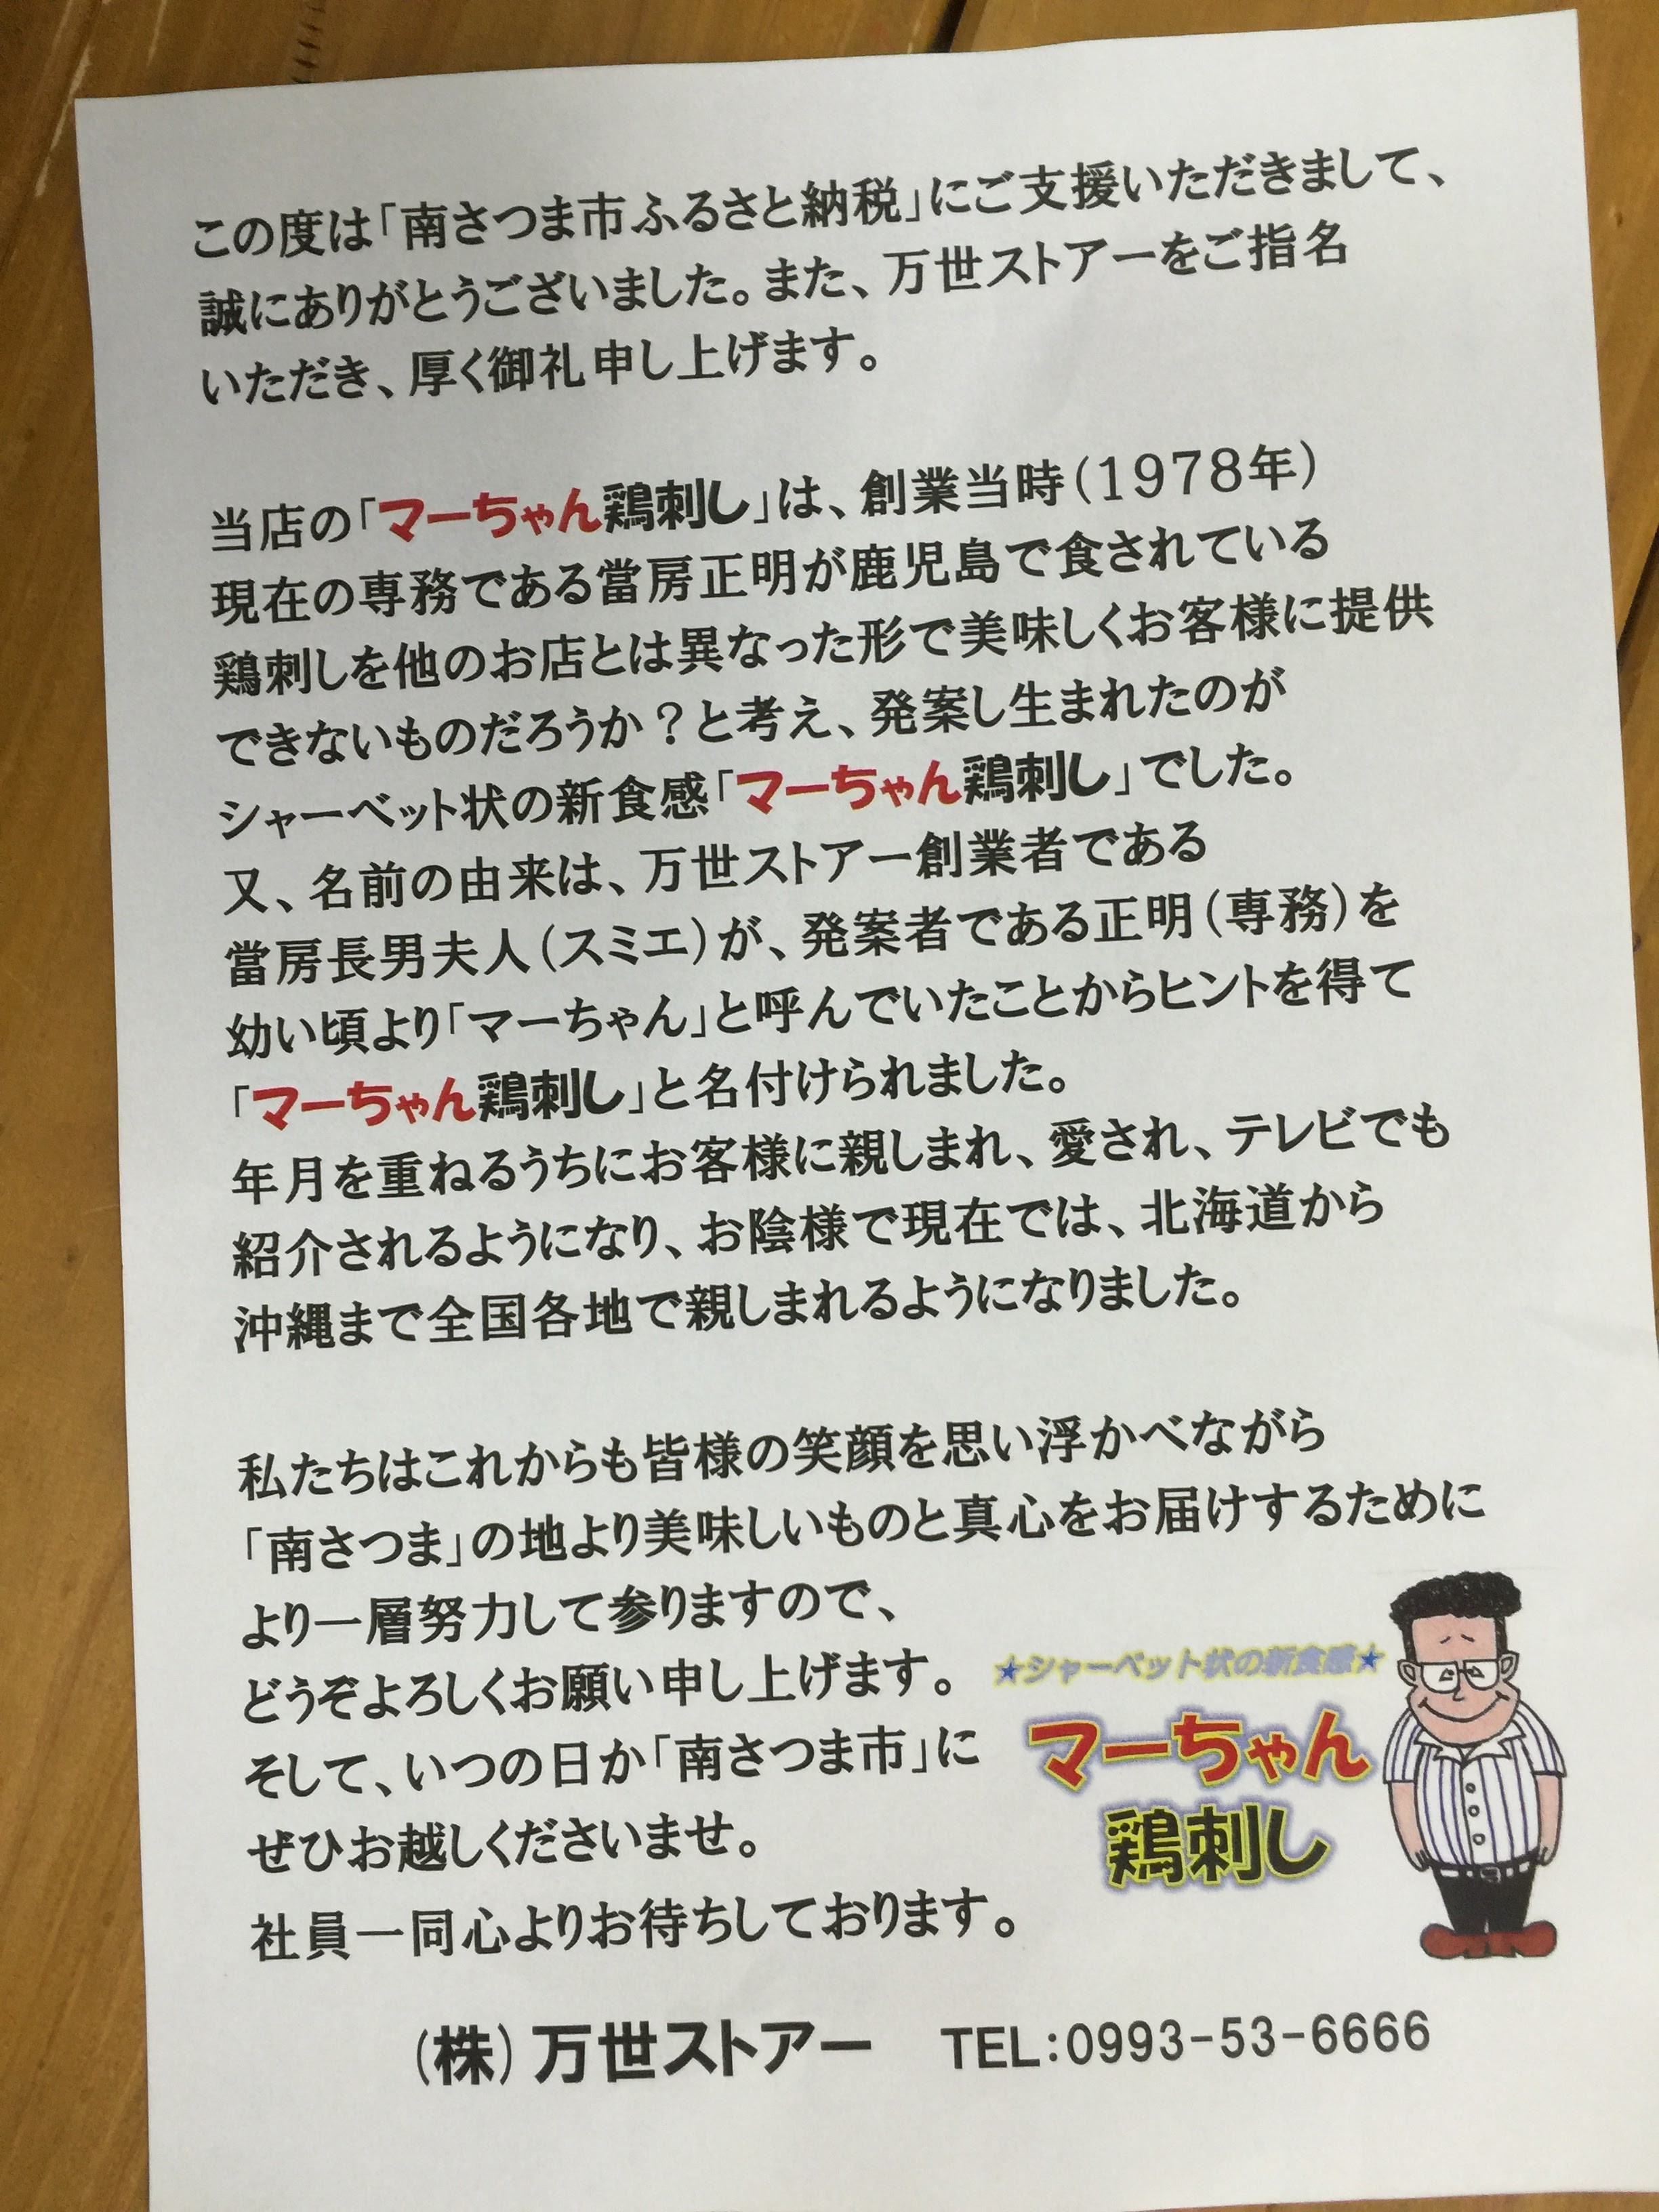 この度は「南さつま市ふるさと納税」にご支援いただきまして、
誠にありがとうございました。また、万世ストアーをご指名
いただき、厚く御礼申し上げます。
当店の「マーちゃん鶏刺し」は、創業当時(1978年)
現在の専務である當房正明が鹿児島で食されている
鶏刺しを他のお店とは異なった形で美味しくお客様に提供
できないものだろうか?と考え、発案し生まれたのが
シャーベット状の新食感「マーちゃん鶏刺し」でした。
又、名前の由来は、万世ストアー創業者である
當房長男夫人(スミエ)が、発案者である正明(専務)を
幼い頃より「マーちゃん」と呼んでいたことからヒントを得て
「マーちゃん鶏刺し」と名付けられました。
年月を重ねるうちにお客様に親しまれ、愛され、テレビでも
紹介されるようになり、お陰様で現在では、北海道から
沖縄まで全国各地で親しまれるようになりました。
私たちはこれからも皆様の笑顔を思い浮かべながら
「南さつま」の地より美味しいものと真心をお届けするために
より一層努力して参りますので、
どうぞよろしくお願い申し上げます。
そして、いつの日か「南さつま市」に
ぜひお越しくださいませ。
社員一同心よりお待ちしております。
★シャーベット状の新食感★
マーちゃん
鶏刺し
(株)万世ストアー TEL:0993-53-6666